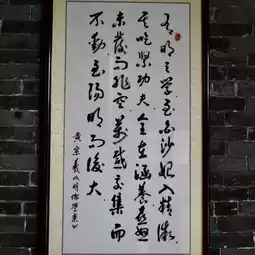 有明之學至白沙始入精微
其吃緊功夫全在涵養喜怒
未發而非空萬感交集而
不動至陽明而後大
黄宗羲《明儒學案》